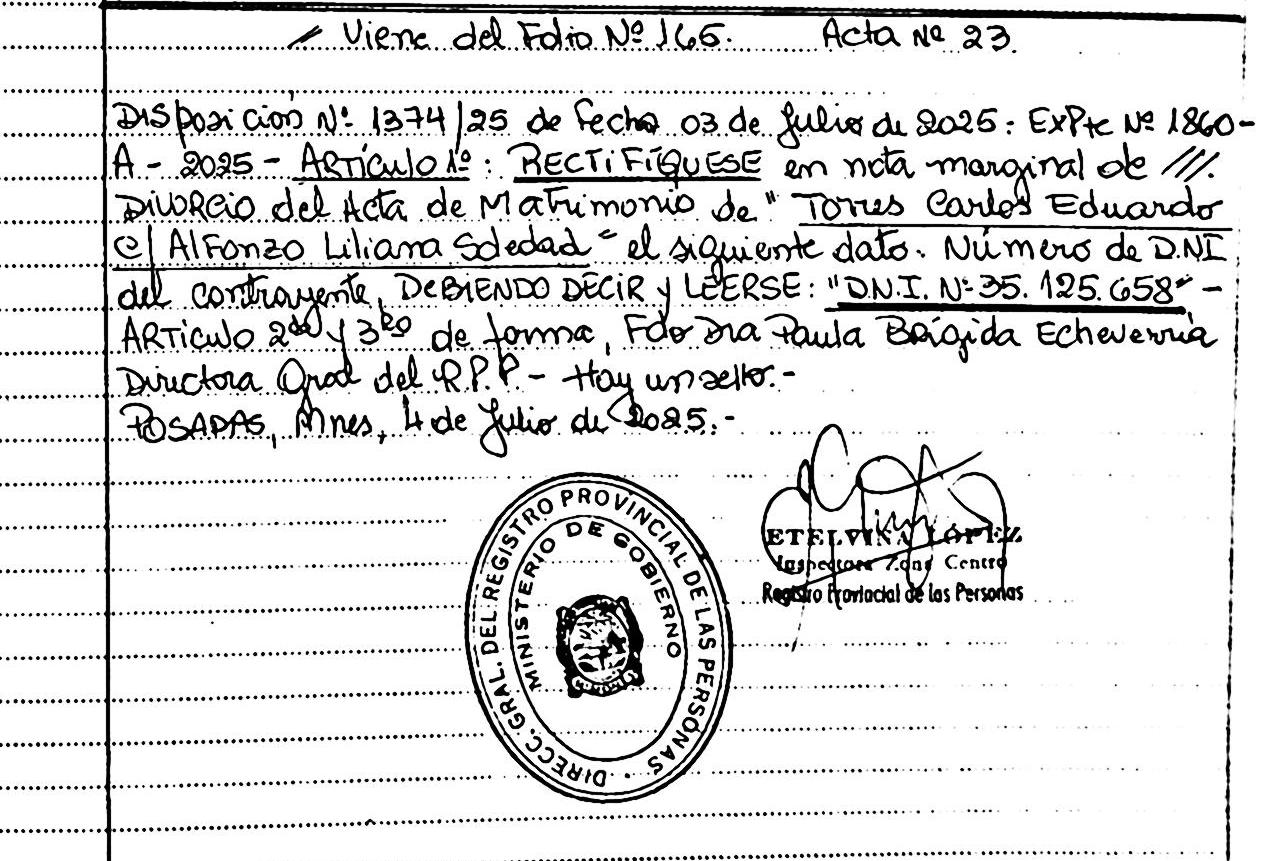 // Viene del Folio Nº 165. Acta Nº 23.
Disposición Nº 1374/25 de fecha 03 de Julio de 2025: Expte Nº 1860-
A - 2025 - ARTÍCULO 1º: RECTIFÍQUESE en nota marginal de ///.
DIVORCIO del Acta de Matrimonio de "Torres Carlos Eduardo
c/ Alfonzo Liliana Soledad" el siguiente dato. Número de D.NI
del contrayente, DEBIENDO DECIR y LEERSE: "D.N.I. Nº 35.125.658" -
ARTICULO 2do y 3ro de forma, Fdo Dra Paula Brígida Echeverría
Directora Gral del R.P.P. - Hay un sello.-
POSADAS, Mnes, 4 de Julio de 2025.-
DIRECC. GRAL. DEL REGISTRO PROVINCIAL DE LAS PERSONAS
MINISTERIO DE GOBIERNO
ETELVINA LÓPEZ
Inspectora Zona Centro
Registro Provincial de las Personas